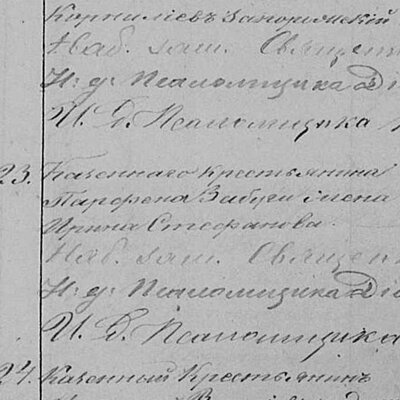 Корнилiевъ Загорянскiй
Наб. заш. Священ
И: д: Псаломщика
И. Д. Псаломщика
23. Казеннаго крестьянина
Парфена Забуги жена
Ирина Стефанова.
Наб. заш. Священ
И: д: Псаломщика
И. Д. Псаломщика
24. Казенный Крестьянинъ